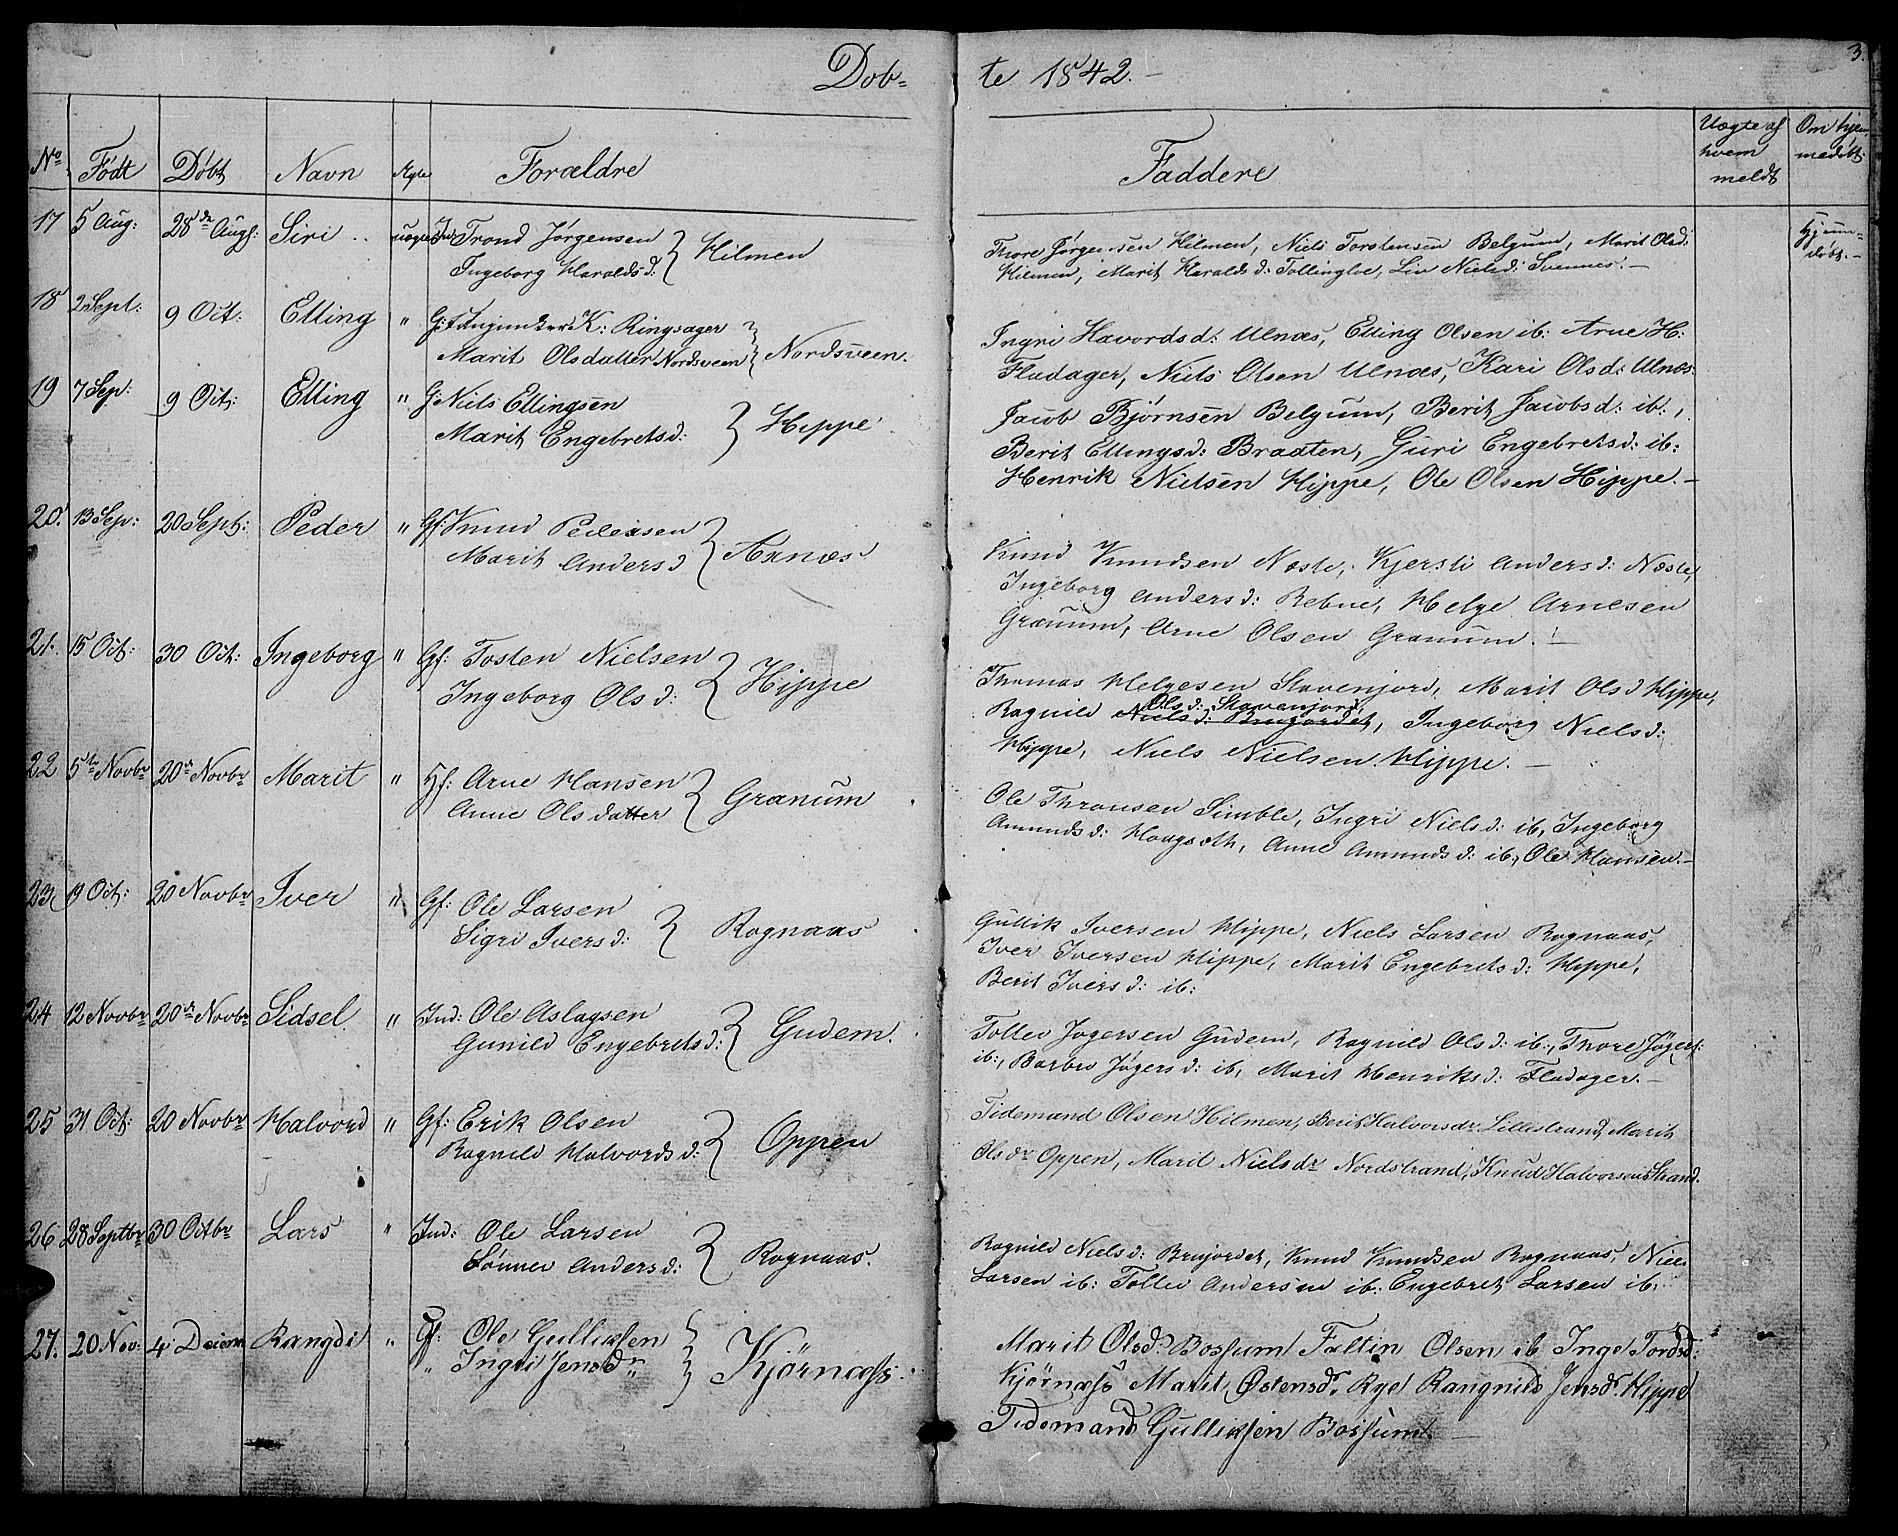 3.
Døb= te 1842.
No Født Døbt Navn Ægte Forældre Faddere Uægte af hvem meldt Om hjem= medøbt.
17 5 Aug: 28de Aug: Siri uægte Ind: Trond Jørgensen
Ingeborg Haralds d: } Hilmen
Thore Jørgensen Hilmen, Niels Torstensen Belgum, Marit Olsd:
Hilmen, Marit Haralds d: Tollingbe, Liv Nielsd: Svennes. —
Hjem= døbt. —
18 2 Sept: 9 Oct: Elling " K: Ringsager
Marit Olsdatter Nordsveen } Nordsveen.
Ingri Havordsd: Ulnæs, Elling Olsen ib: Arne H:
Fladager, Niels Olsen Ulnæs, Kari Olsd: Ulnæs
19 7 Sep: 9 Oct: Elling " G: Niels Ellingsen
Marit Engebretsd: } Hippe
Jacob Bjørnsen Belgum, Berit Jacobsd: ib:,
Berit Ellingsd: Bradten, Guri Engebretsd: ib:
Henrik Nielsen Hippe, Ole Olsen Hippe. —
20. 13 Sep: 20 Sept: Peder " Gf: Knud Pedersen
Marit Andersd } Axnæs
Knud Knudsen Næste, Kjersti Andersd: Næste,
Ingeborg Andersd: Rebne, Helge Arnesen
Granum, Arne Olsen Granum. —
21. 15 Oct: 30 Oct: Ingeborg " Gf: Tosten Nielsen
Ingeborg Olsd: } Hippe
Thomas Helgesen Stavenjord, Marit Olsd Hippe,
Olsd: Stavenjord,
Ragnild Nielsd: Brujordet, Ingeborg Nielsd:
Hippe, Niels Nielsen Hippe. —
22 5te Novbr 20de Novbr Marit " Hf: Arne Hansen
Anne Olsdatter } Granum
Ole Thronsen Simble, Ingri Nielsd: ib, Ingeborg
Amundsd: Haugseth, Anne Amundsd: ib, Ole Hansen. —
23 9 Oct: 20 Novbr Iver " Gf: Ole Larsen
Sigri Ivers d: } Rognaas
Gullik Iversen Hippe, Niels Larsen Rognaas,
Iver Iversen Hippe, Marit Engebretsd: Hippe,
Berit Ivers d: ib:
24 12 Novbr 20de Novbr Sidsel " Ind: Ole Aslagsen
Gunild Engebretsd: } Gudem.
Tollev Jøgersen Gudem, Ragnild Olsd: ib:, Thore Jøgers:
ib:, Barbro Jøgersd: ib, Marit Henriksd: Fladager. —
25 31 Oct: 20 Novbr Halvord " Gf: Erik Olsen
Ragnild Halvordsd: } Oppen
Tidemand Olsen Hilmen, Berit Halvorsdr Lillestrand, Marit
Olsdr Oppen, Marit Nielsdr Nordstrand, Knud Halvorsen Strand.
26 28 Septbr 30 Octbr Lars " Ind: Ole Larsen
Sønner Andersd: } Rognaas.
Ragnild Nielsd: Brujordet, Knud Knudsen Rognaas, Niels
Larsen ib: Tollev Andersen ib: Engebret Larsen ib:
27. 20 Nov: 4 Decem Rangdi " Gf: Ole Gulliksen
" Ingri Jensdr } Kjörnæss.
Marit Olsd: Bossum Faltin Olsen ib Inge Tordsd:
Kjörnæss Marit Østensdr Rye Rangnild Jensdr Hippe
Tidemand Gulliksen Bossum. —